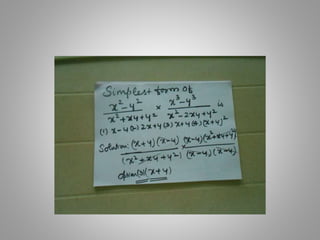 Simplest form of
x²-y²/x²+xy+y² × x³-y³/x²-2xy+y² is
(1) x-y (2) 2x+y (3) x+y (4) (x+y)²
Solution: (x+y)(x-y)/(x²+xy+y²) (x-y)(x²+xy+y²)/(x-y)(x-y)
option(3)(x+y)